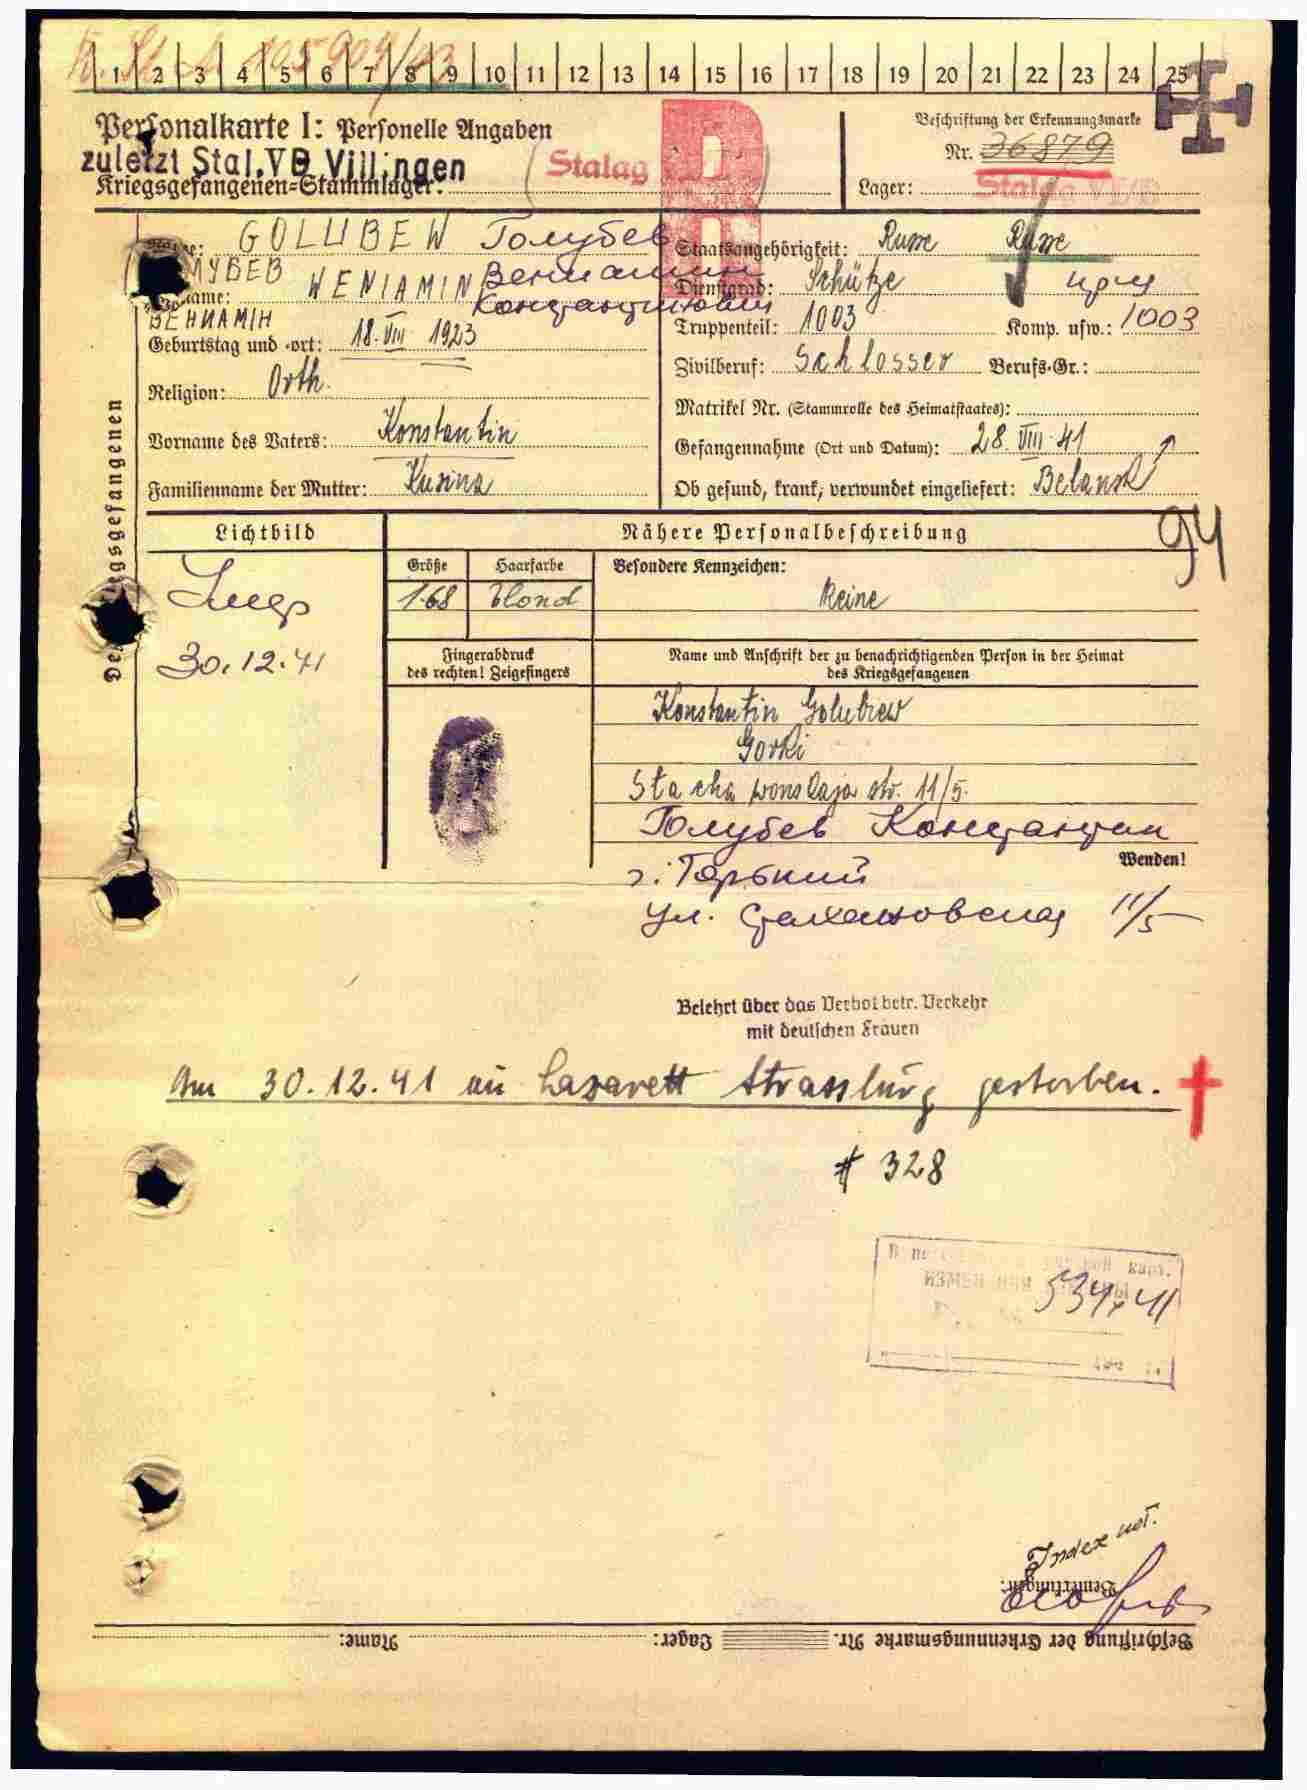 1 2 3 4 5 6 7 8 9 10 11 12 13 14 15 16 17 18 19 20 21 22 23 24 25
Personalkarte I: Personelle Angaben
Beschriftung der Erkennungsmarke
zuletzt Stal. VB Villingen
Stalag
Nr. 36879
Kriegsgefangenen-Stammlager:
Lager: Stalag
Name: GOLUBEW Голубев
Staatsangehörigkeit: Russe Russe
Vorname: WENIAMIN Вениамин
Константинович
ВЕНИАМІН
Dienstgrad: Schütze
Truppenteil: 1003 Komp. usw.: 1003
Geburtstag und -ort: 18. VIII 1923
Zivilberuf: Schlosser Berufs-Gr.:
Religion: Orth.
Matrikel Nr. (Stammrolle des Heimatstaates):
Vorname des Vaters: Konstantin
Gefangennahme (Ort und Datum): 28. VIII 41
Familienname der Mutter: Kusina
Ob gesund, krank, verwundet eingeliefert: Belansk
Des Kriegsgefangenen
94
Lichtbild
Nähere Personalbeschreibung
Größe Haarfarbe Besondere Kennzeichen:
1.68 blond keine
30.12.41
Fingerabdruck
des rechten! Zeigefingers
Name und Anschrift der zu benachrichtigenden Person in der Heimat
des Kriegsgefangenen
Konstantin Golubew
Gorki
Stachawonskaja str. 11/5.
Голубев Константин
Wenden!
г. Горький
ул. Стахановская 11/5
Belehrt über das Verbot betr. Verkehr
mit deutschen Frauen
Am 30.12.41 im Lazarett Strassburg gestorben.
# 328
534/41
Index not.
Bemerkungen:
Beschriftung der Erkennungsmarke Nr. Lager: Name: